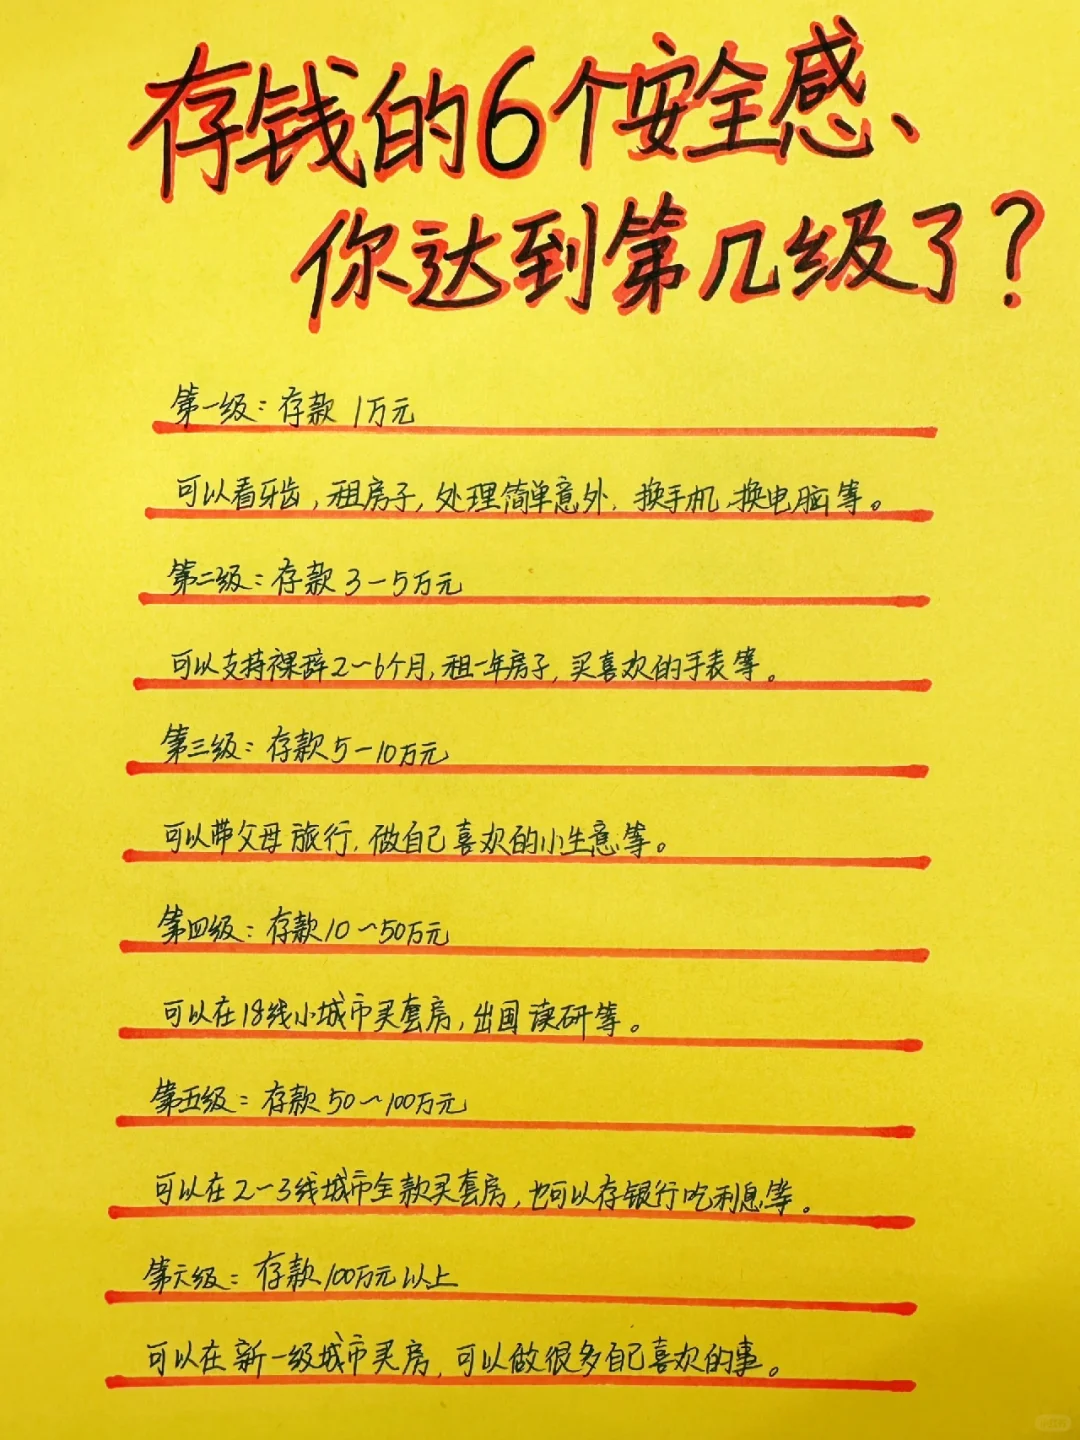 存钱的6个安全感、
你达到第几级了？
第一级：存款 1万元
可以看牙齿，租房子，处理简单意外，换手机、换电脑等。
第二级：存款 3-5万元
可以支持裸辞2～6个月，租一年房子，买喜欢的手表等。
第三级：存款5-10万元
可以带父母旅行，做自己喜欢的小生意等。
第四级：存款10～50万元
可以在18线小城市买套房，出国读研等。
第五级：存款50～100万元
可以在2-3线城市全款买套房，也可以存银行吃利息等。
第六级：存款100万元以上
可以在新一级城市买房，可以做很多自己喜欢的事。